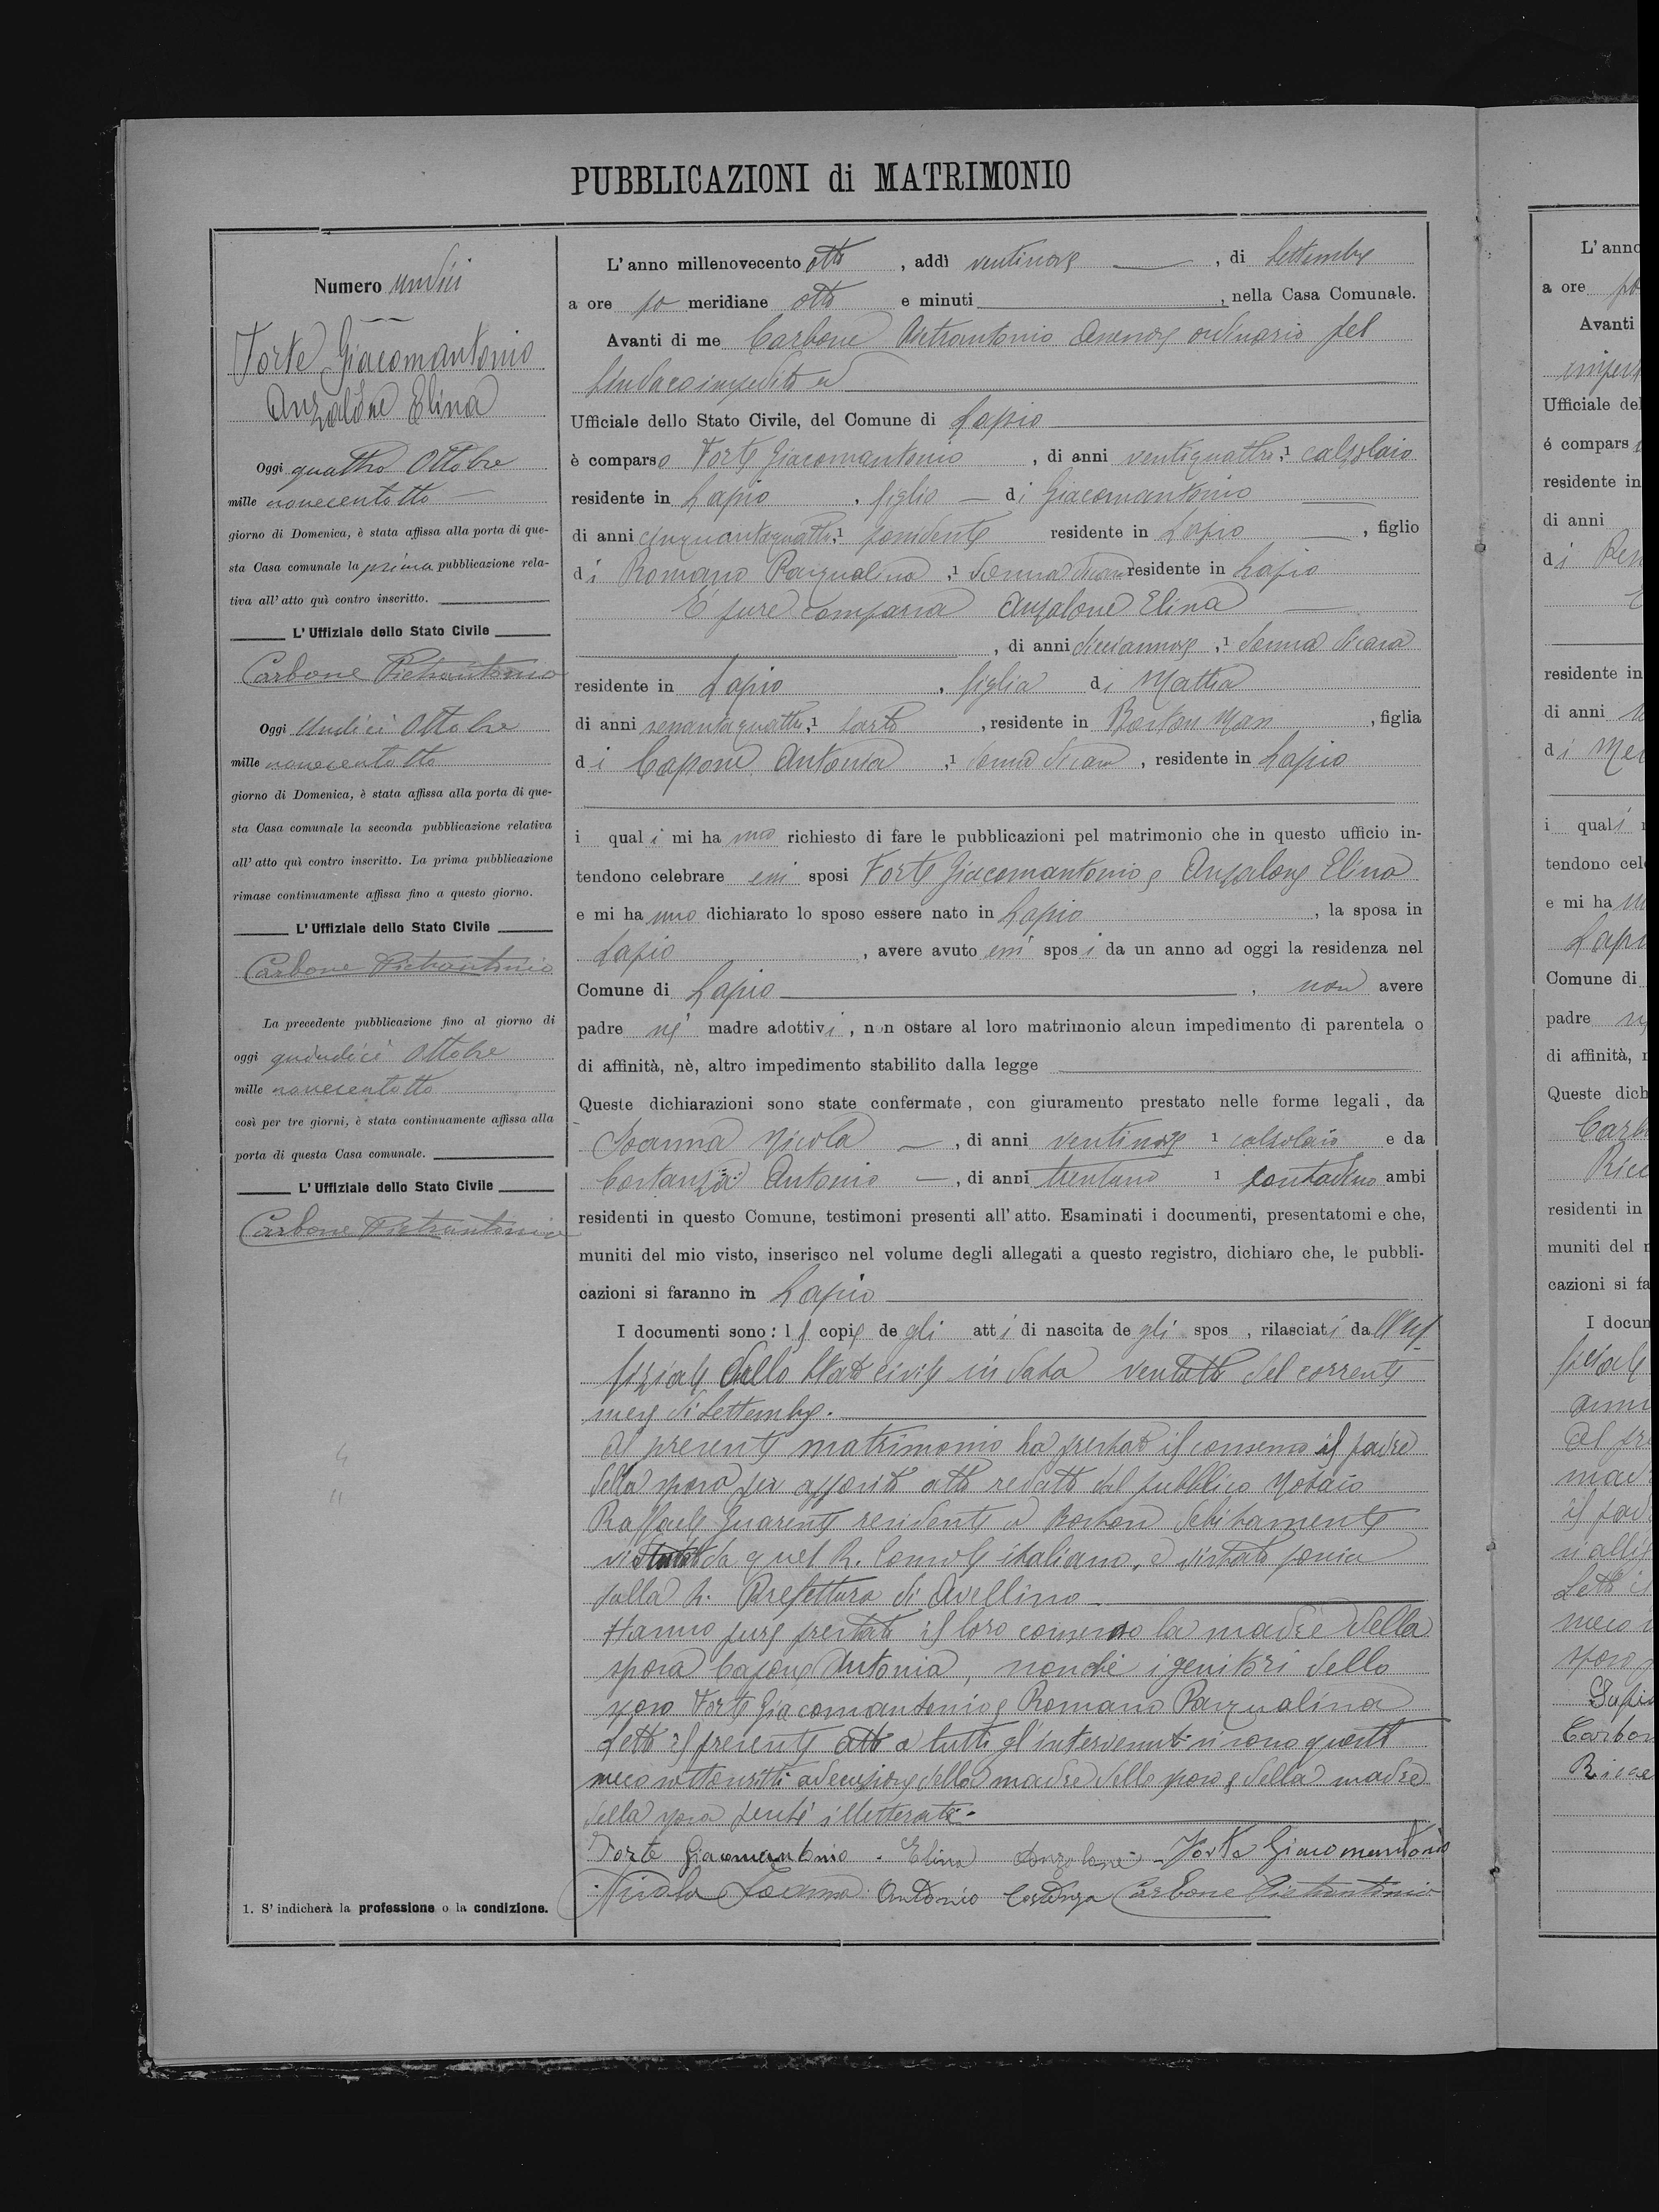 PUBBLICAZIONI di MATRIMONIO
Numero undici
Forte Giacomantonio
Anzalone Elina
Oggi quattro Ottobre
mille novecentotto
giorno di Domenica, è stata affissa alla porta di que-
sta Casa comunale la prima pubblicazione rela-
tiva all' atto quì contro inscritto.
L' Uffiziale dello Stato Civile
Carbone Pietrantonio
Oggi Undici Ottobre
mille novecentotto
giorno di Domenica, è stata affissa alla porta di que-
sta Casa comunale la seconda pubblicazione relativa
all' atto quì contro inscritto. La prima pubblicazione
rimase continuamente affissa fino a questo giorno.
L' Uffiziale dello Stato Civile
Carbone Pietrantonio
La precedente pubblicazione fino al giorno di
oggi quindici Ottobre
mille novecentotto
così per tre giorni, è stata continuamente affissa alla
porta di questa Casa comunale.
L' Uffiziale dello Stato Civile
Carbone Pietrantonio
1. S' indicherà la professione o la condizione.
L' anno millenovecento otto, addì ventinove, di Settembre
a ore po meridiane otto e minuti, nella Casa Comunale.
Avanti di me Carbone Pietrantonio Assessore ordinario pel
Sindaco impedito ed
Ufficiale dello Stato Civile, del Comune di Lapio
è comparso Forte Giacomantonio, di anni ventiquattro, 1 calzolaio
residente in Lapio, figlio di Giacomantonio
di anni cinquantaquattro, 1 possidente residente in Lapio, figlio
di Romano Pasqualina, 1 donna di casa residente in Lapio
E' pure comparsa Anzalone Elina
, di anni diciannove, 1 donna di casa
residente in Lapio, figlia di Mattia
di anni sessantaquattro, 1 sarto, residente in Boston Mass, figlia
di Capone Antonia, 1 donna di casa, residente in Lapio
i quali mi hanno richiesto di fare le pubblicazioni pel matrimonio che in questo ufficio in-
tendono celebrare essi sposi Forte Giacomantonio e Anzalone Elina
e mi hanno dichiarato lo sposo essere nato in Lapio, la sposa in
Lapio, avere avuto essi sposi da un anno ad oggi la residenza nel
Comune di Lapio, non avere
padre nè madre adottivi, non ostare al loro matrimonio alcun impedimento di parentela o
di affinità, nè, altro impedimento stabilito dalla legge
Queste dichiarazioni sono state confermate, con giuramento prestato nelle forme legali, da
Ioanna Nicola, di anni ventinove 1 calzolaio e da
Costanza Antonio, di anni trentuno 1 contadino ambi
residenti in questo Comune, testimoni presenti all' atto. Esaminati i documenti, presentatomi e che,
muniti del mio visto, inserisco nel volume degli allegati a questo registro, dichiaro che, le pubbli-
cazioni si faranno in Lapio
I documenti sono: le copie degli atti di nascita degli spos, rilasciati dall'Uf-
fiziale dello Stato civile in data ventotto del corrente
mese di Settembre.
Al presente matrimonio ha prestato il consenso il padre
della sposa per apposito atto redatto dal pubblico Notaio
Raffaele Guarente residente a Boston debitamente
da quel R. Console italiano, e vistato poscia
dalla R. Prefettura di Avellino
Hanno pure prestato il loro consenso la madre della
sposa Capone Antonia, nonchè i genitori dello
sposo Forte Giacomantonio e Romano Pasqualina
Letto il presente atto a tutti gl'intervenuti si sono questi
meco sottoscritti ad eccezione della madre dello sposo e della madre
della sposa perchè illetterate.
Forte Giacomantonio. Elina Anzalone. Forte Giacomantonio
Nicola Ioanna. Antonio Costanza Carbone Pietrantonio
L' anno
a ore po
Avanti
Ufficiale del
é compars
residente in
di anni
di
residente in
di anni
di
i quali
tendono cel
e mi ha
Lapi
Comune di
padre
di affinità,
Queste dich
Carb
Ricc
residenti in
muniti del
cazioni si fa
I docun